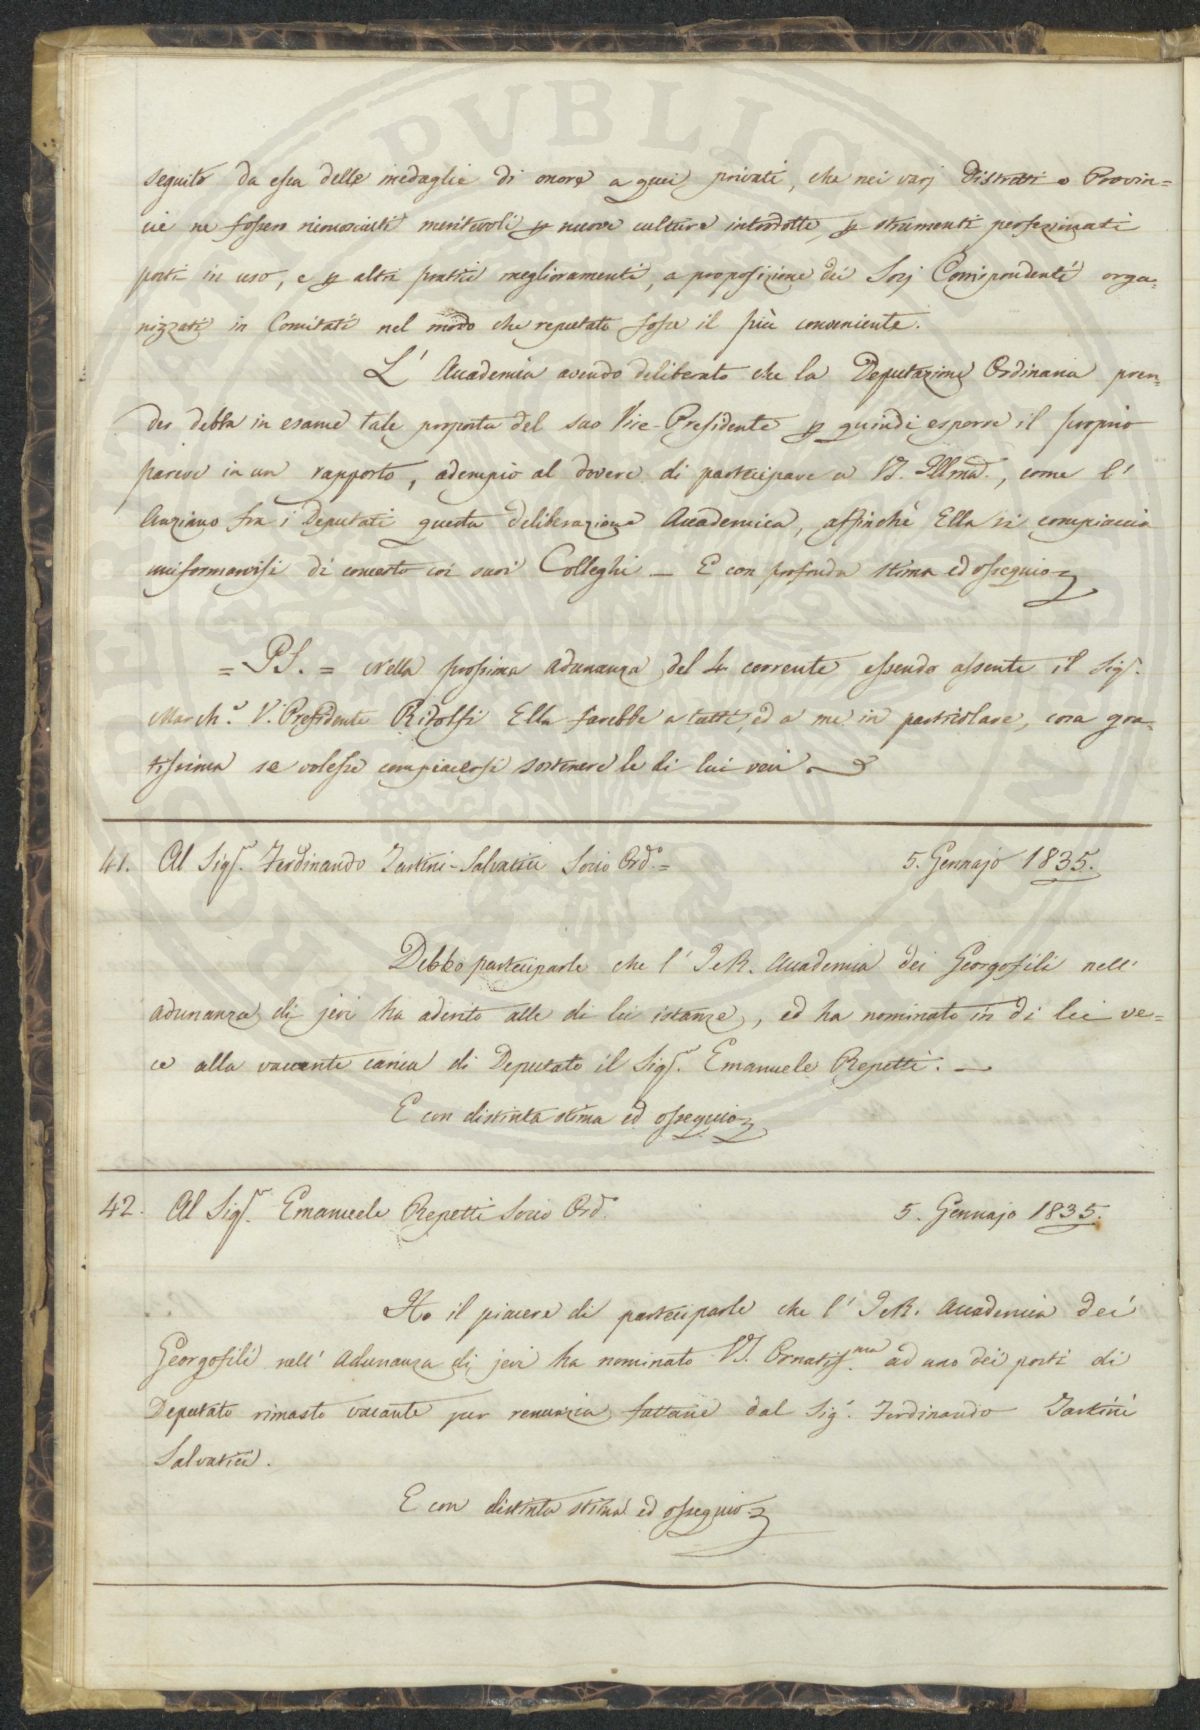 seguito da essa delle medaglie di onore a quei privati, che nei varj Distretti o Provin=
cie ne fossero riconosciuti meritevoli p nuove culture introdotte, p strumenti perfezionati
posti in uso, e p altri pratici miglioramenti, a proposizione dei Socj Corrispondenti orga=
nizzati in Comitati nel modo che reputato fosse il più conveniente.
L' Accademia avendo deliberato che la Deputazione Ordinaria pren=
der debba in esame tale proposta del suo Vice-Presidente p quindi esporre il proprio
parere in un rapporto, adempio al dovere di partecipare a VS. Illma., come l'
Anziano fra i Deputati questa deliberazione Accademica, affinché Ella si compiaccia
uniformarvisi di concerto coi suoi Colleghi — E con profonda stima ed ossequio
= PS. = Nella prossima adunanza del 4 corrente essendo assente il Sigr.
March.e V. Presidente Ridolfi Ella farebbe a tutti, ed a me in particolare, cosa gra=
tissima se volesse compiacersi sostenere le di lui veci
41. Al Sigr. Ferdinando Tartini-Salvatici Socio Ord.o = 5. Gennajo 1835.
Debbo parteciparle che l' I e R. Accademia dei Georgofili nell'
adunanza di jeri ha aderito alle di lei istanze, ed ha nominato in di lei ve=
ce alla vacante carica di Deputato il Sigr. Emanuele Repetti. —
E con distinta stima ed ossequio
42. Al Sigr. Emanuele Repetti Socio Ord.o 5. Gennajo 1835.
Ho il piacere di parteciparle che l' I e R. Accademia dei
Georgofili nell' Adunanza di jeri ha nominato VS. Ornatiss.ma ad uno dei posti di
Deputato rimasto vacante per renunzia fattane dal Sigr. Ferdinando Tartini
Salvatici.
E con distinta stima ed ossequio